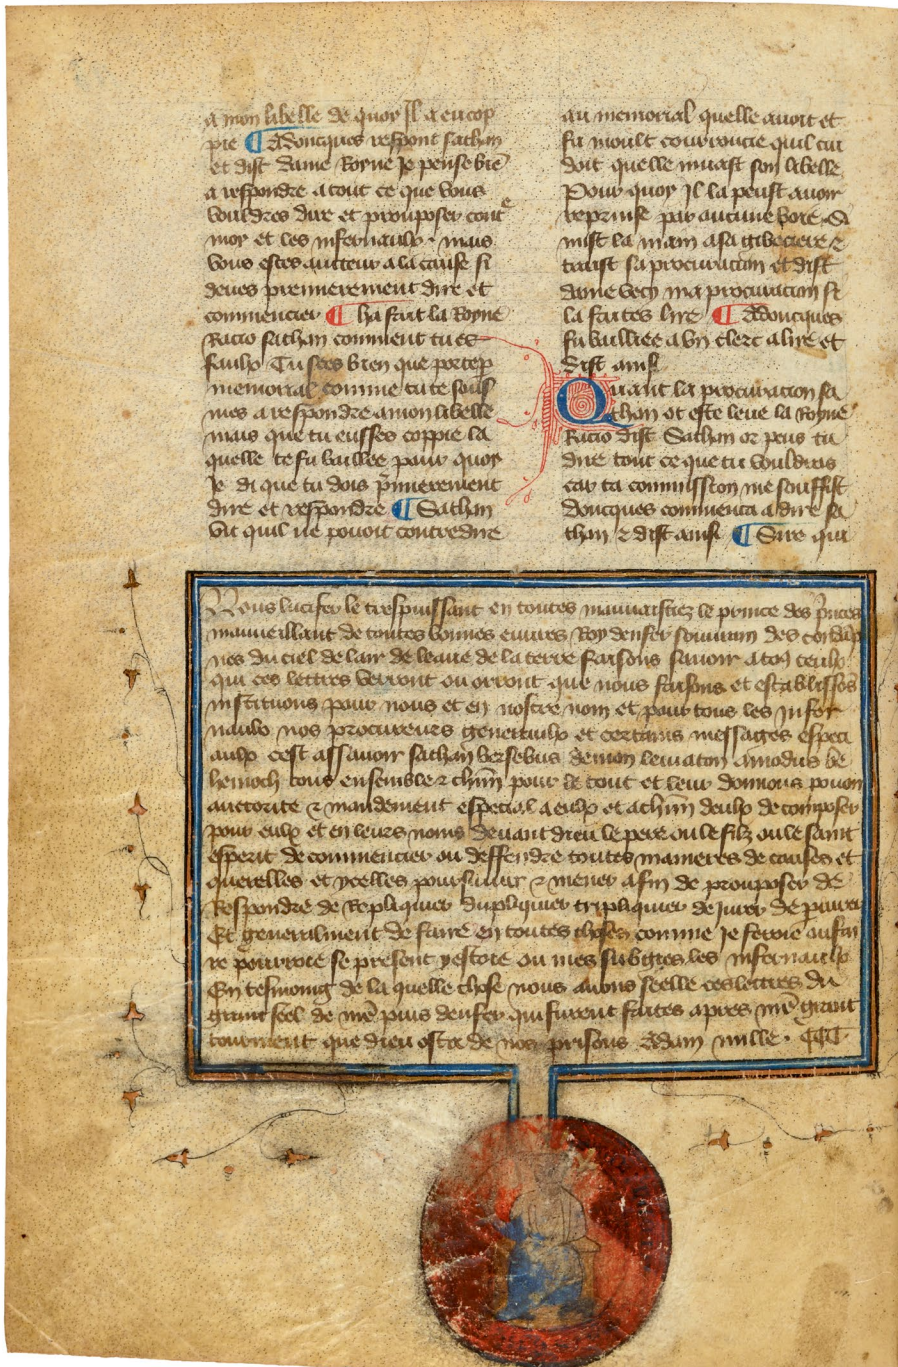 a mon libelle de quoy Il a eu cop
pie ¶ Adoncques respont sathan
et dist dame Royne Je pense biē
a respondre a tout ce que vous
vouldres dire et proposer contᵉ
moy et les infernaulx · mais
vous estes aucteur a la cause si
deues premierement dire et
commencier ¶ Ha fait la Royne
Racio sathan comment tu es
faulx Tu sces bien que porte p
memorial comme tu te soub
mes a respondre a mon libelle
mais que tu eusses coppie la
quelle te fu baillee pour quoy
Je di que tu dois p̄mierement
dire et respondre ¶ Sathan
vit quil ne pouoit contredire
au memorial quelle auoit et
fu moult courroucie quil cui
doit quelle muast son libelle
Pour quoy Il la peust auoir
reprinse par aucune voie Si
mist la main a sa gibeciere ⁊
traist sa procuracion et dist
dame vecy ma procuracion fe
la faites lire ¶ Adoncques
fu baillee a vn clerc a lire et
dist ainsi
Quant la procuracion sa
than ot este leue la Royne
Racio dist Sathan or peus tu
dire tout ce que tu vouldras
car ta commission me souffist
doncques commenca a dire sa
than ⁊ dist ainsi ¶ Sire qui
Nous lucifer le trespuissant en toutes mauuaistiez le prince des p̄nces
maueillant de toutes bonnes euures Roy denfer souuain des condāp
nes du ciel de lair de leaue de la terre faisons sauoir a toꝯ ceulx
qui ces lettres verront ou orront que nous faisons et establissōs
instituons pour nous et en nostre nom et pour tous les Infer
naulx nos procureurs generaulx et certains messages especi
aulx cest assauoir sathan bersebus demon leuiaton amodus be
hemoch tous ensemble ⁊ chūn pour le tout et leur donnons pouoir
auctorite ⁊ mandement especial a eulx et a chūn deulx de composer
pour eulx et en leurs noms deuant dieu le pere ou le filz ou le saint
esperit de commencier ou deffendre toutes manieres de causes et
querelles et ycelles poursuiuir ⁊ mener a fin de proposer de
Respondre de Repliquier dupliquier tripliquier de Iurer de
Et generalment de faire en toutes choses comme Je feroie ou fai
re pourroie se present y estoie ou mes subgies les infernaulx
En tesmoing de la quelle chose nous auons seelle ces lettres du
grant seel de nr̄e puis denfer qui furent faites apres nr̄e grant
tourment que dieu osta de nos prisons Adam mille · CCC